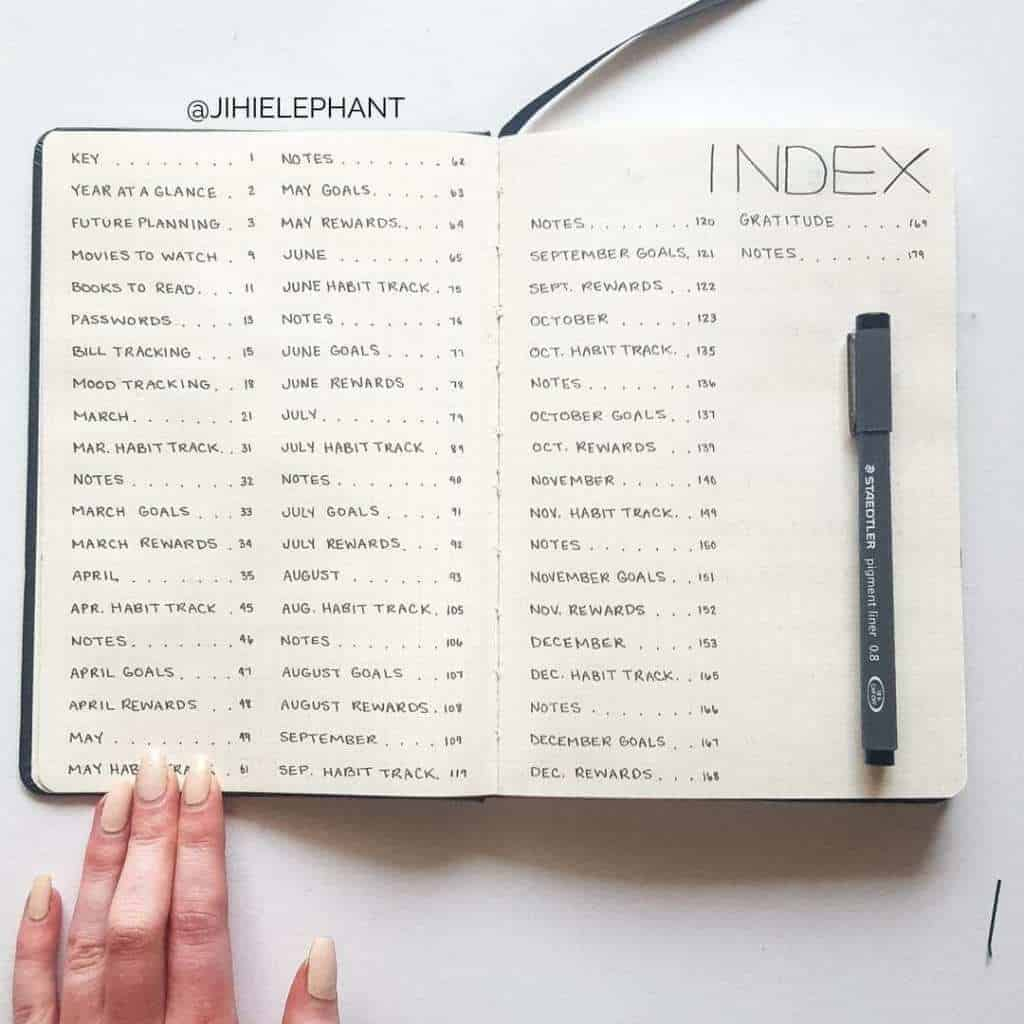 @JIHIELEPHANT
KEY . . . . . . . . 1
YEAR AT A GLANCE . 2
FUTURE PLANNING . 3
MOVIES TO WATCH . 9
BOOKS TO READ. . . 11
PASSWORDS . . . . 13
BILL TRACKING . . . 15
MOOD TRACKING. . 18
MARCH. . . . . . . 21
MAR. HABIT TRACK. . 31
NOTES . . . . . . . 32
MARCH GOALS . . . 33
MARCH REWARDS . 34
APRIL . . . . . . . 35
APR. HABIT TRACK . 45
NOTES. . . . . . . 46
APRIL GOALS . . . . 47
APRIL REWARDS . . 48
MAY . . . . . . . . 49
MAY HABIT TRACK . 61
NOTES . . . . . . . 62
MAY GOALS. . . . . 63
MAY REWARDS. . . . 64
JUNE . . . . . . . 65
JUNE HABIT TRACK . 75
NOTES . . . . . . . 76
JUNE GOALS . . . . 77
JUNE REWARDS . . 78
JULY. . . . . . . . 79
JULY HABIT TRACK . 89
NOTES. . . . . . . 90
JULY GOALS . . . . 91
JULY REWARDS. . . 92
AUGUST . . . . . . 93
AUG. HABIT TRACK. 105
NOTES . . . . . . 106
AUGUST GOALS . . 107
AUGUST REWARDS. 108
SEPTEMBER . . . . 109
SEP. HABIT TRACK. 119
INDEX
NOTES. . . . . . . 120
SEPTEMBER GOALS. 121
SEPT. REWARDS . . 122
OCTOBER . . . . . 123
OCT. HABIT TRACK. . 135
NOTES . . . . . . . 136
OCTOBER GOALS. . 137
OCT. REWARDS . . 139
NOVEMBER . . . . . 140
NOV. HABIT TRACK. . 149
NOTES . . . . . . . 150
NOVEMBER GOALS. . 151
NOV. REWARDS . . . 152
DECEMBER . . . . 153
DEC. HABIT TRACK. . 165
NOTES . . . . . . . 166
DECEMBER GOALS . . 167
DEC. REWARDS. . . 168
GRATITUDE . . . . 169
NOTES. . . . . . . 179
STAEDTLER pigment liner 0.8